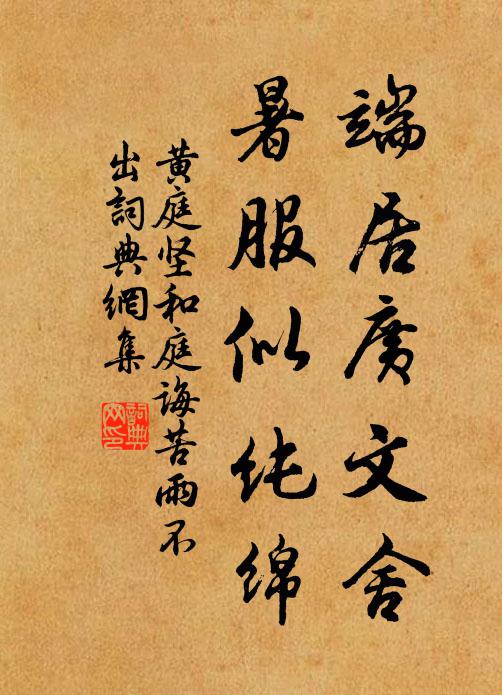 端居廣文舍
暑服似纯綿
黄庭坚和庭诲苦雨不
出詞典網集
詞典
网印